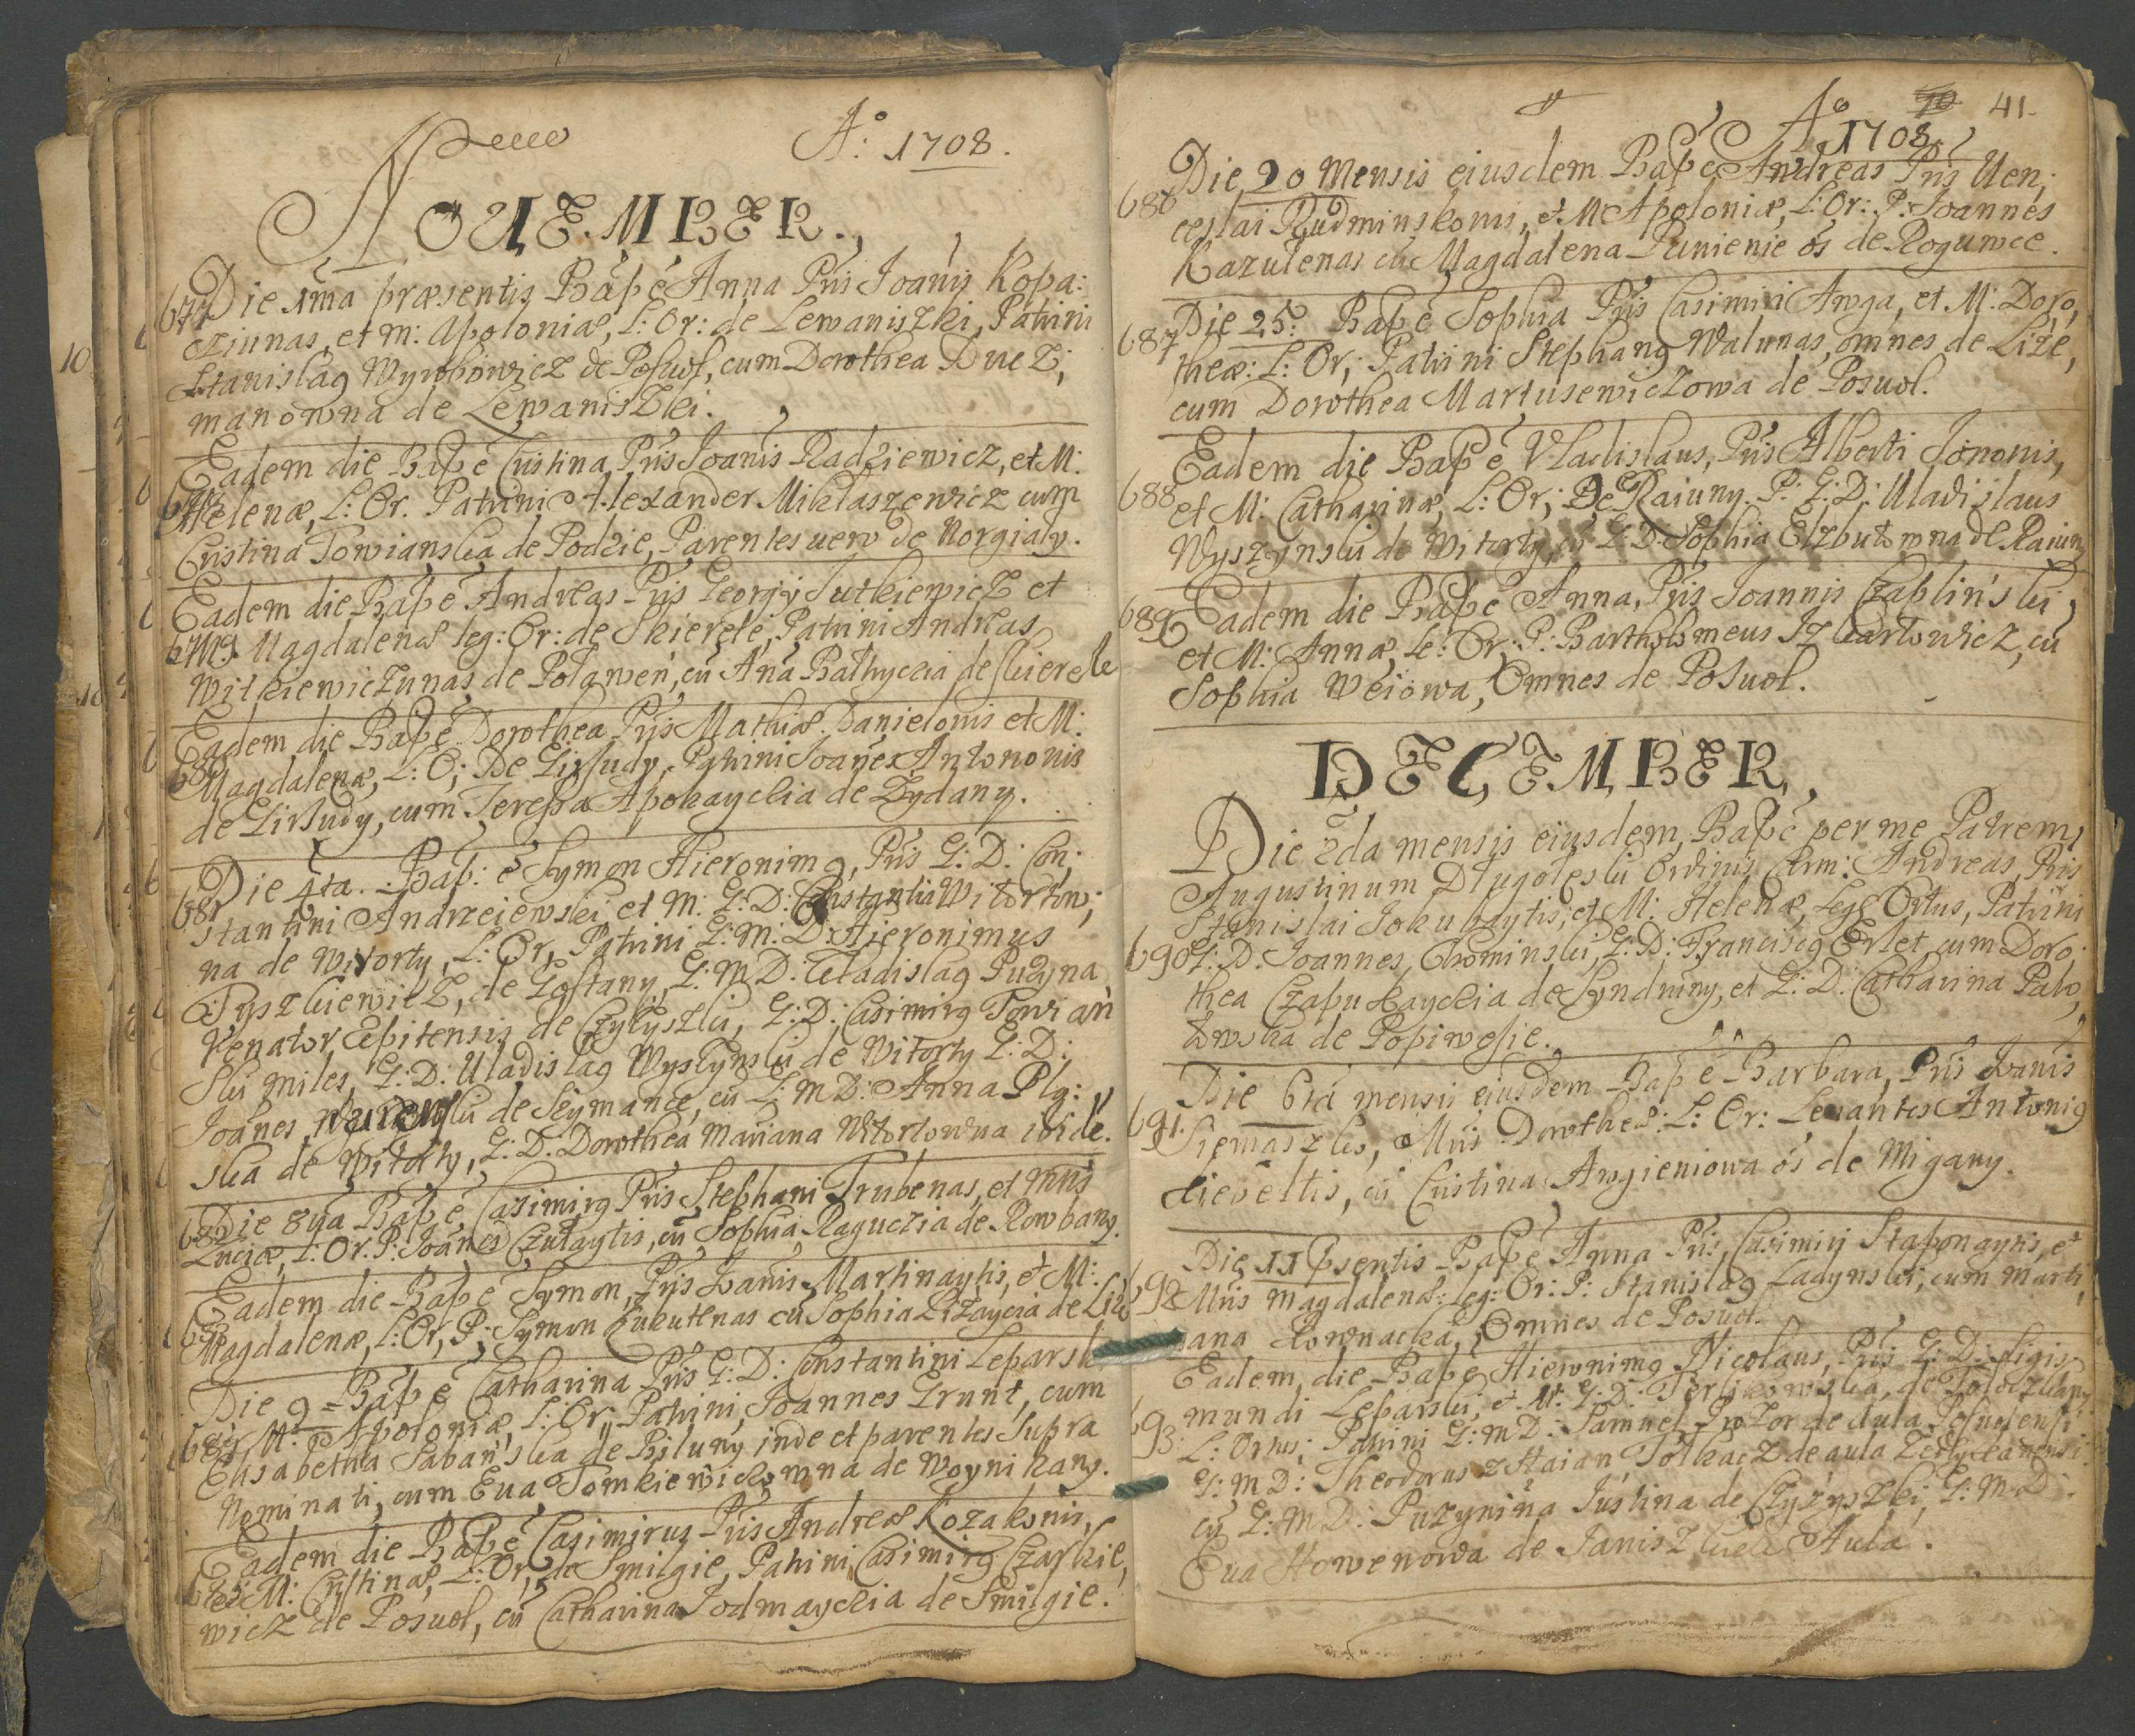 Ao: 1708.
NOUEMBER.
677 Die 1ma præsentis Bapẽ Anna Pris Joanis Kopa:
cziunas, et M: Apoloniæ, L: Or: de Lewaniszki, Patrini
Stanislaq Wyrobowicz de Posuol, cum Dorothea Duez;
manowna de Lewaniszki.
Eadem die Bapẽ Cristina Pris Joanis Radziewicz, et M:
Helenæ, L: Or. Patrini Alexander Miklaszewicz cum
Cristina Towianska de Podzie, Parentes uero de Norgialy.
Eadem die Bapẽ Andreas Pris Georgÿ Jutkiewicz et
M: Magdalenæ leg: Or: de Skierele, Patrini Andreas
Witkiewiczunas de Polawen, cũ Ana Bathyckia de Skierele
Eadem die Bapẽ Dorothea Pris Mathiæ Danielonis et M:
Magdalenæ, L: O; De Girsudy, Patrini Joanes Antononis
de Girsudy, cum Teressa Apokayckia de Dydany.
681 Die 4ta. Bap: ẽ Symon Hieronimq, Pris G: D: Con;
stantini Andrzeiewski, et M: G: D: Constantia Witortow;
na de Witorty, L: Or, Patrini G: M: D: Hieronimus
Tyszkiewicz, de Gostany, G: M D: Uladislaq Puzyna
Venator Upitensis de Czyzyszki, G: D: Casimirq Towian
ski miles, G: D: Uladislaq Wyszynski de Witorty G: D:
Joanes de Seymance, cũ G: M D: Anna Plq:
ska de Witorty, G: D: Dorothea Mariana Witortowna ibidẽ.
682 Die 8ua Bapẽ Casimirq Pris Stephani Trubenas, et Mris
Luciæ, L: Or. P: Joanes Czutaytis, cũ Sophia Raguckia de Rowbany.
Eadem die Bapẽ Symon, Pris Joanis Martinaytis, et M:
Magdalenæ, L: Or, P; Symon Kukutenas cũ Sophia Lizaycia de Lize
684 Die 9 = Bapẽ Catharina Pris G: D: Constantini Leparski
M: Apoloniæ, L: Or; Patrini, Joannes Grunt, cum
Elisabetha Sabanska de Biluny inde et parentes supra
Nominati, cum Eua Tomkiewickowna de Woynikany.
Eadem die Bapẽ Casimirus Pris Andreæ Kozakonis,
685 et M: Cristinæ, L: Or, de Smilgie, Patrini Casimirq Czarkie,
wicz de Posuol, cũ Catharina Jodmayckia de Smilgie.
41.
Ao 1708.
686 Die 20 Mensis eiusdem Bapẽ Andreas Pris Uen;
ceslai Rudminskonis, et M Apoloniæ, L: Or: P: Joannes
Kazulenas cũ Magdalena Punienie õs de Rogunce.
687 Die 25. Bapẽ Sophia Pris Casimiri Awga, et M: Doro,
theæ: L: Or; Patrini Stephanq Walunas, omnes de Lize,
cum Dorothea Martusewiczowa de Posuol.
688 Eadem die Bapẽ Vladislaus, Pris Alberti Jononis,
et M: Catharinæ, L: Or; De Raiuny. P: G: D: Uladislaus
Wyszynski de Witorty, cũ G: D: Sophia Elzbutowna de Raiuny
689 Eadem die Bapẽ Anna, Pris Joannis Czaplinski,
et M: Annæ, Le: Or; P: Bartholomeus Izkartowicz, cũ
Sophia Weiowa, Omnes de Posuol.
DECEMBER.
Die 2da mensis eiusdem, Bapẽ per me Patrem,
Augustinum Dlugoleski Ordinis Carm: Andreas, Pris
Stanislai Jokubaytis, et M: Helenæ, Lege Ortus, Patrini
690 G: D. Joannes, Chominski, G: D: Franciscq Erlet, cum Doro,
thea Czapukayckia de Syndniny, et G: D: Catharina Palo,
Die 6ta mensis eiusdem Bapẽ Barbara, Pris Joanis
691. Siemaszko, Mris Dorotheæ: L: Or: Leuantes Antoniq
Cieueltis, cũ Cristina Awgieniowa õs de Migany.
Die 11 Psentis Bapẽ Anna Pris, Casimiri Staponaytis, et
692 Mris Magdalenæ: leg: Or: P: Stanislaq Ladynski, cum Marti,
ana Rownacka, Omnes de Posuol.
Eadem, die Bapẽ Hieronimq Nicolaus, Pris G: D: Sigis
693. mundi Leparski, et M: G: D:
L: Ortus; Patrini G: M D: Samuel de Aula Posuolensi
G: M D: Theodorus de aula
cũ G: M D: Puzynina Justina de Czyzyszki, G: M D:
Eua Howenowa de Janiszkiele Aula.